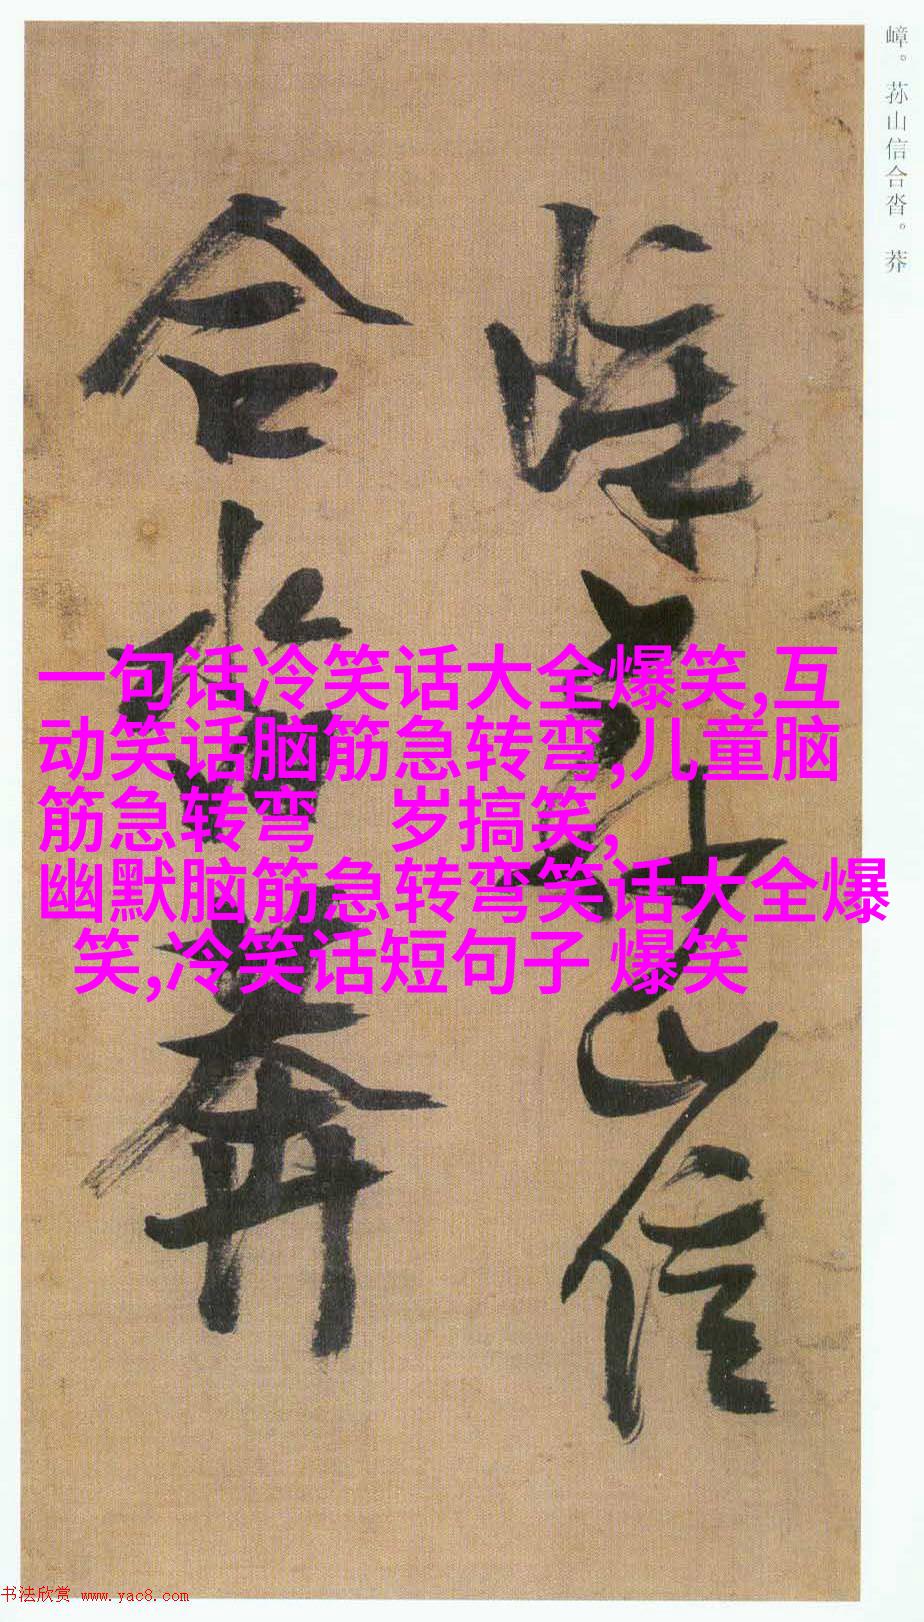 嶂。荪山信合沓。莽
嶂荪山信
合沓莽
一句话冷笑话大全爆笑,互
动笑话脑筋急转弯,儿童脑
筋急转弯 岁搞笑,
幽默脑筋急转弯笑话大全爆
笑,冷笑话短句子 爆笑
书法欣赏 www.yac8.com